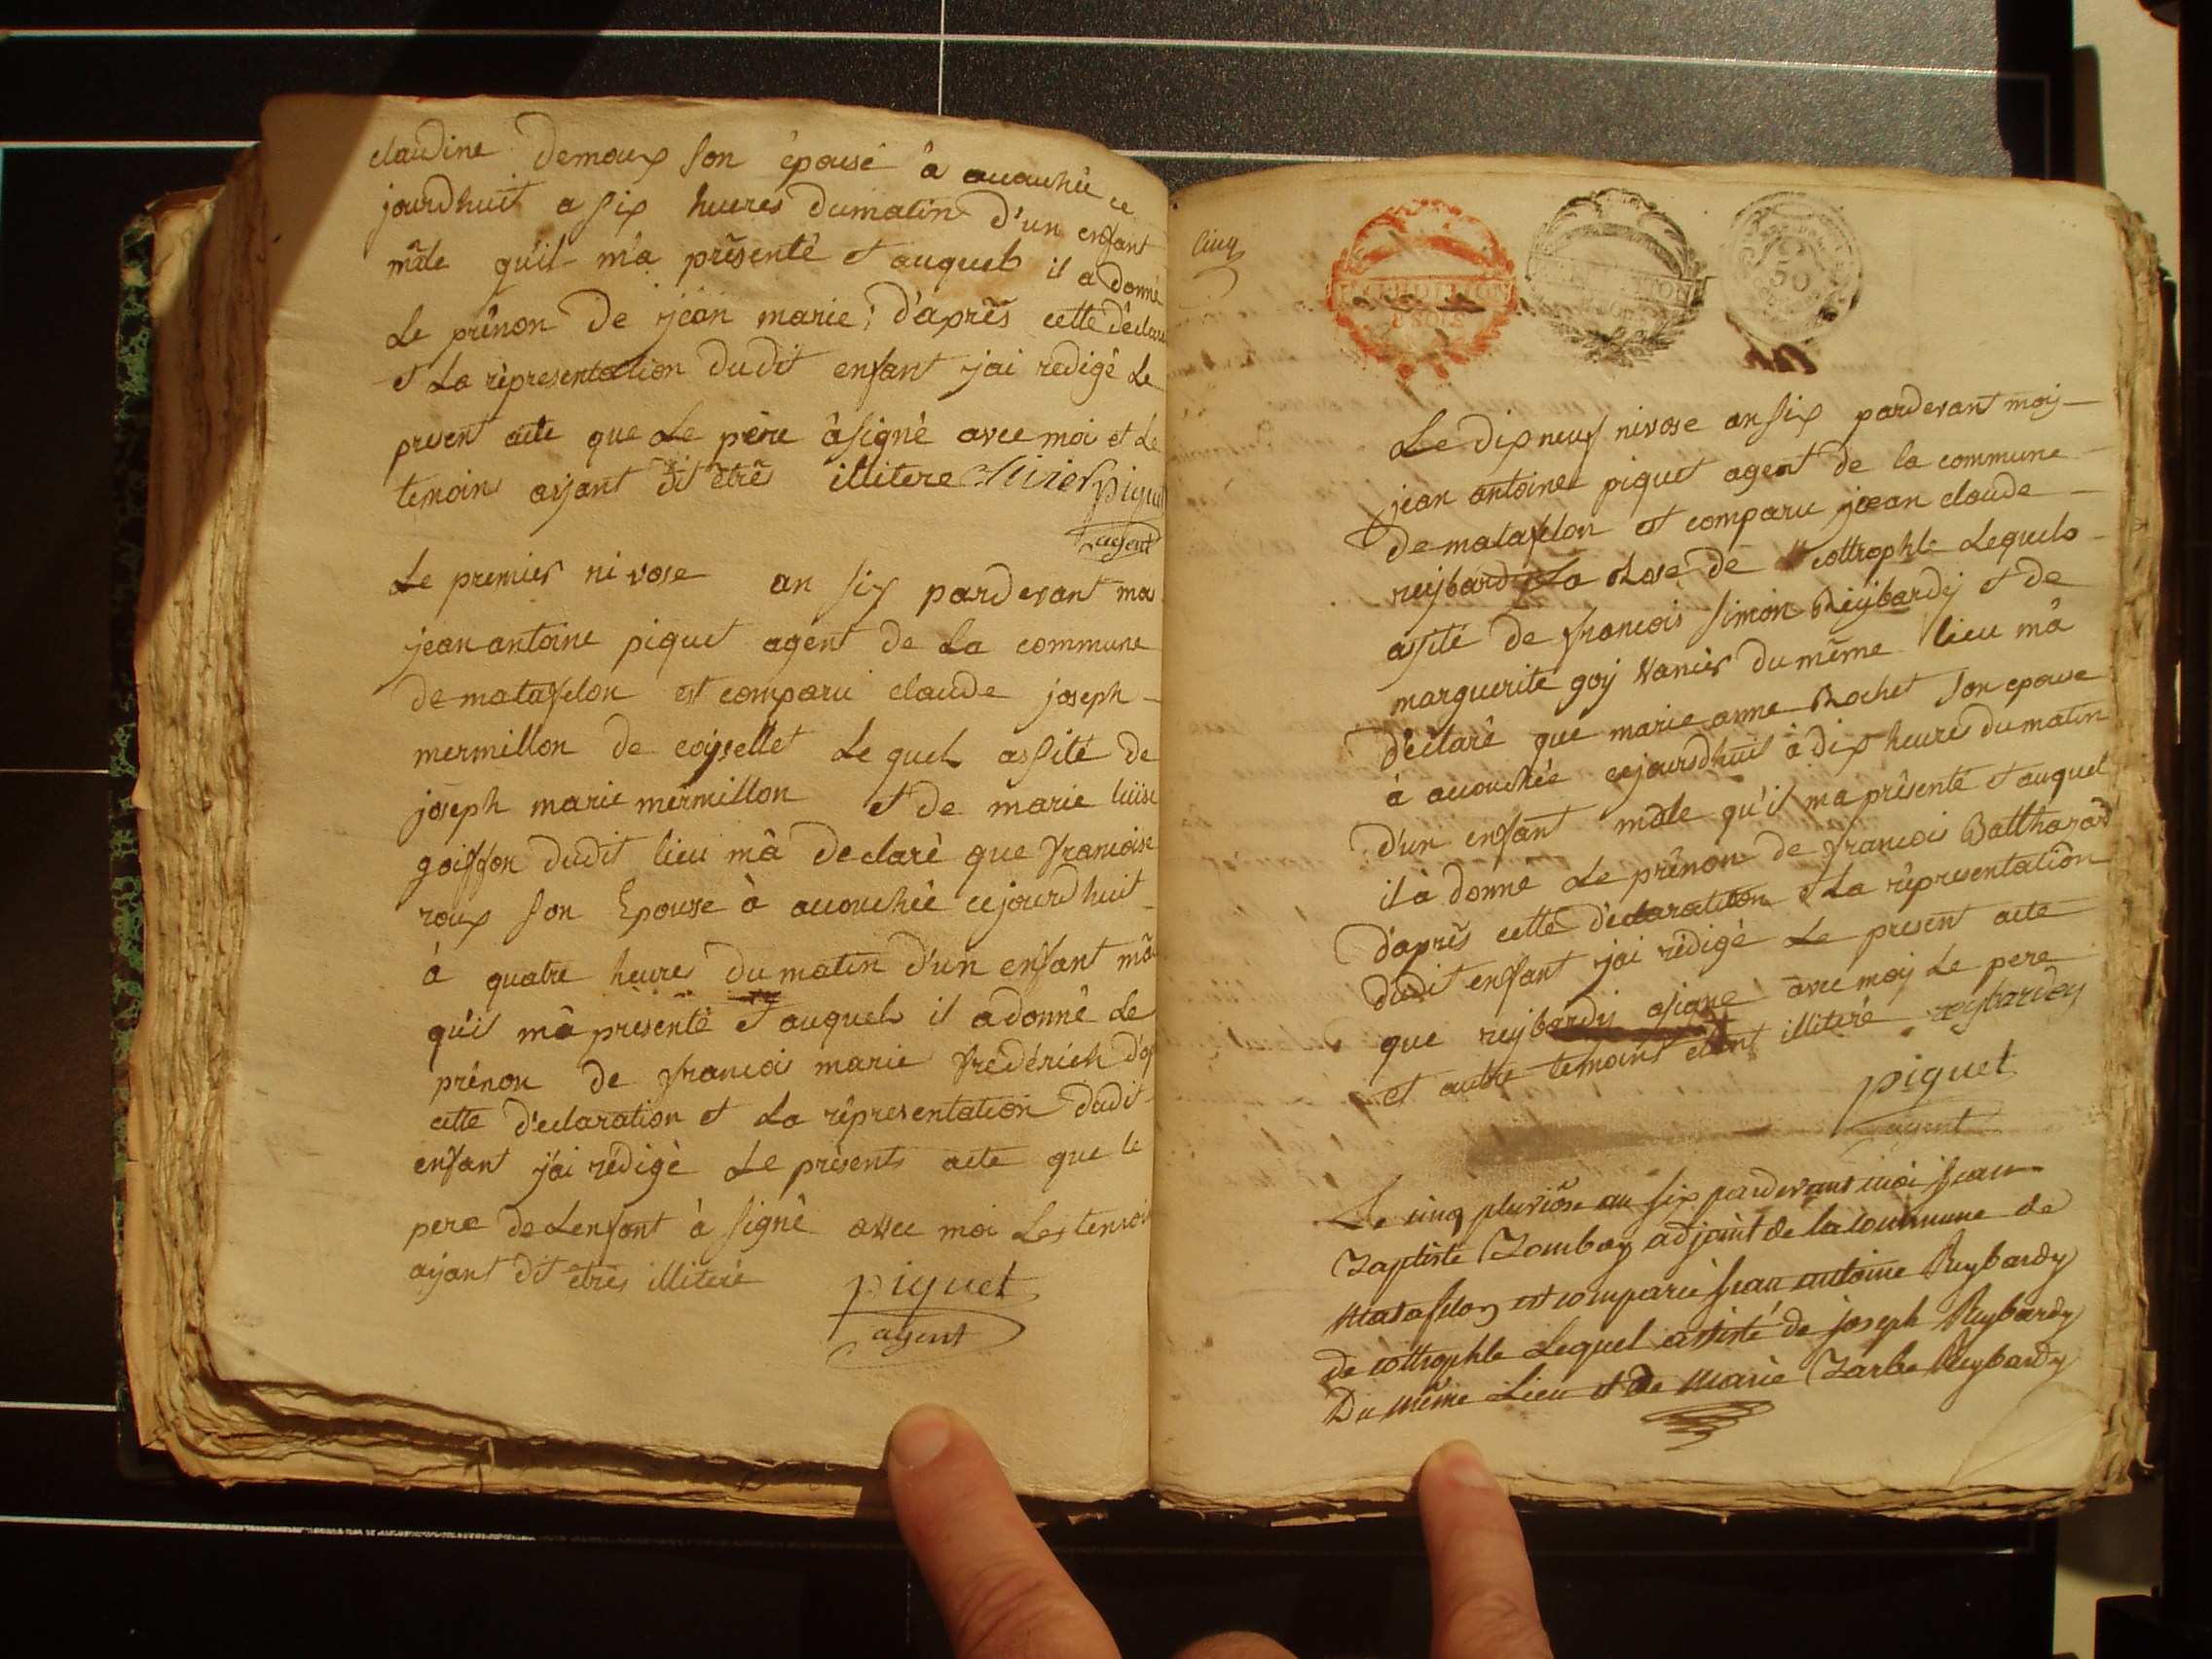 claudine Demoux son épouse à accouchée ce
jourdhuit a six heures dumatin d'un enfant
mâle qu'il m'a présenté et auquel il a donné
Le prénon De jean marie; D'après cette Déclara
et La répresentation Dudit enfant jai redigé Le
present acte que Le pére à signé avec moi et Le
temoins ayant dit être illitere olivier piquet
agent
Le premier nivose an six pardevant moi
jean antoine piquet agent de La commune
de matafelon est comparu claude joseph
mermillon de coyselet Lequel assité de
joseph marie mermillon et de marie
goiffon dudit lieu mâ declaré que francoise
roux son Epouse à accouchée cejourdhuit
à quatre heures Du matin d'un enfant mâ
qu'il mâ présenté et auquel il a donné Le
prénon de francois marie frédérich d'ap
cette d'eclaration et La répresentation dudit
enfant j'ai rédigé Le présent acte que le
pere de Lenfant à signé avec moi Les temoin
ayant dit etres illiteré piquet
agent
Cinq
EXPEDITION
50
Le dix neuf nivose an six pardevant moy
jean antoine piquet agent de la commune
De matafelon est comparu jean claude
reybardy La Rose de cottrophle Lequels
assité de francois simon Reybardy et de
marguerite goy Vanier du même lieu mâ
déclaré que marie anne Rochet son epouse
à accouchée cejourdhuit à dix heures du matin
d'un enfant mâle qu'il ma présenté et auquel
il à donné Le prénon de francois Balthazard
D'après cette d'eclaration et La répresentation
dudit enfant j'ai rédigé Le present acte
que reybardy asigné avec moy Le pere
et autre temoins etant illiteré reybardy
piquet
agent
Le cinq pluviôse an six pardevant moi Jean
Baptiste Jombay adjoint de la commune de
Matafelon est comparu Jean antoine Reybardy
de cottrophle Lequel assisté de joseph Reybardy
Du même Lieu et de Marie Barbe Reybardy